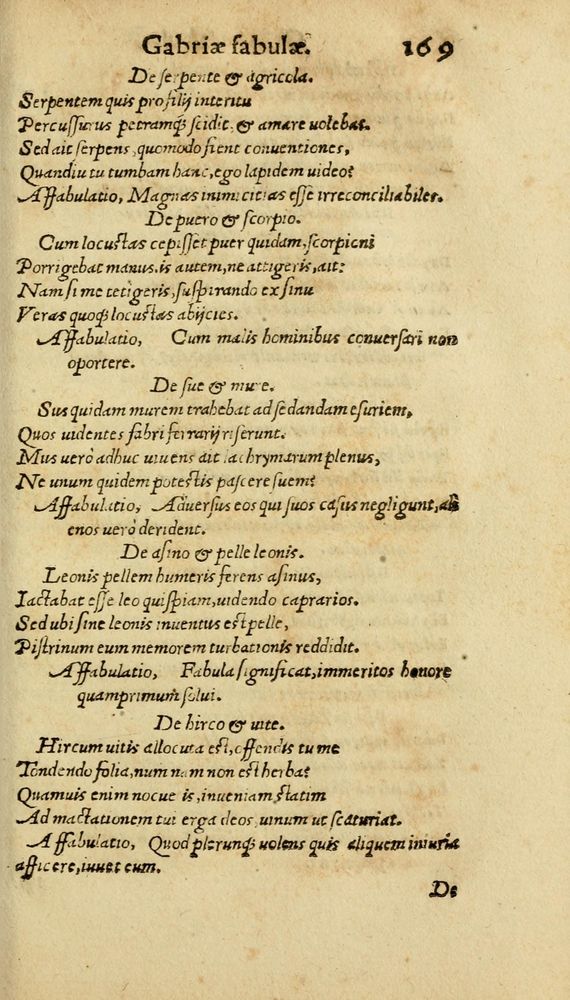 Gabriæ fabulæ. 169
De serpente & agricola.
Serpentem quis pro filij interitu
Percussurus petramq́; scidit, & amare uolebat.
Sed ait serpens, quomodo fient conuentiones,
Quandiu tu tumbam hanc, ego lapidem uideo?
Affabulatio, Magnas inimicitias esse irreconciliabiles.
De puero & scorpio.
Cum locustas cepisset puer quidam, scorpioni
Porrigebat manus. is autem, ne attigeris, ait:
Nam si me tetigeris, suspirando ex sinu
Veras quoq; locustas abijcies.
Affabulatio, Cum malis hominibus conuersari non
oportere.
De sue & mure.
Sus quidam murem trahebat ad sedandam esuriem,
Quos uidentes fabri ferrarij riserunt.
Mus uerò adhuc uiuens ait lachrymarum plenus,
Ne unum quidem potestis pascere suem?
Affabulatio, Aduersus eos qui suos casus negligunt, ali
enos uerò derident.
De asino & pelle leonis.
Leonis pellem humeris ferens asinus,
Iactabat esse leo quispiam, uidendo caprarios.
Sed ubi sine leonis inuentus est pelle,
Pistrinum eum memorem turbationis reddidit.
Affabulatio, Fabula significat, immeritos honore
quamprimum solui.
De hirco & uite.
Hircum uitis allocuta est, offendis tu me
Tondendo folia, num nam non est herba?
Quamuis enim nocueris, inueniam statim
Ad mactationem tui erga deos, uinum ut scaturiat.
Affabulatio, Quod plerunq́; uolens quis aliquem iniuria
afficere, iuuet eum.
De